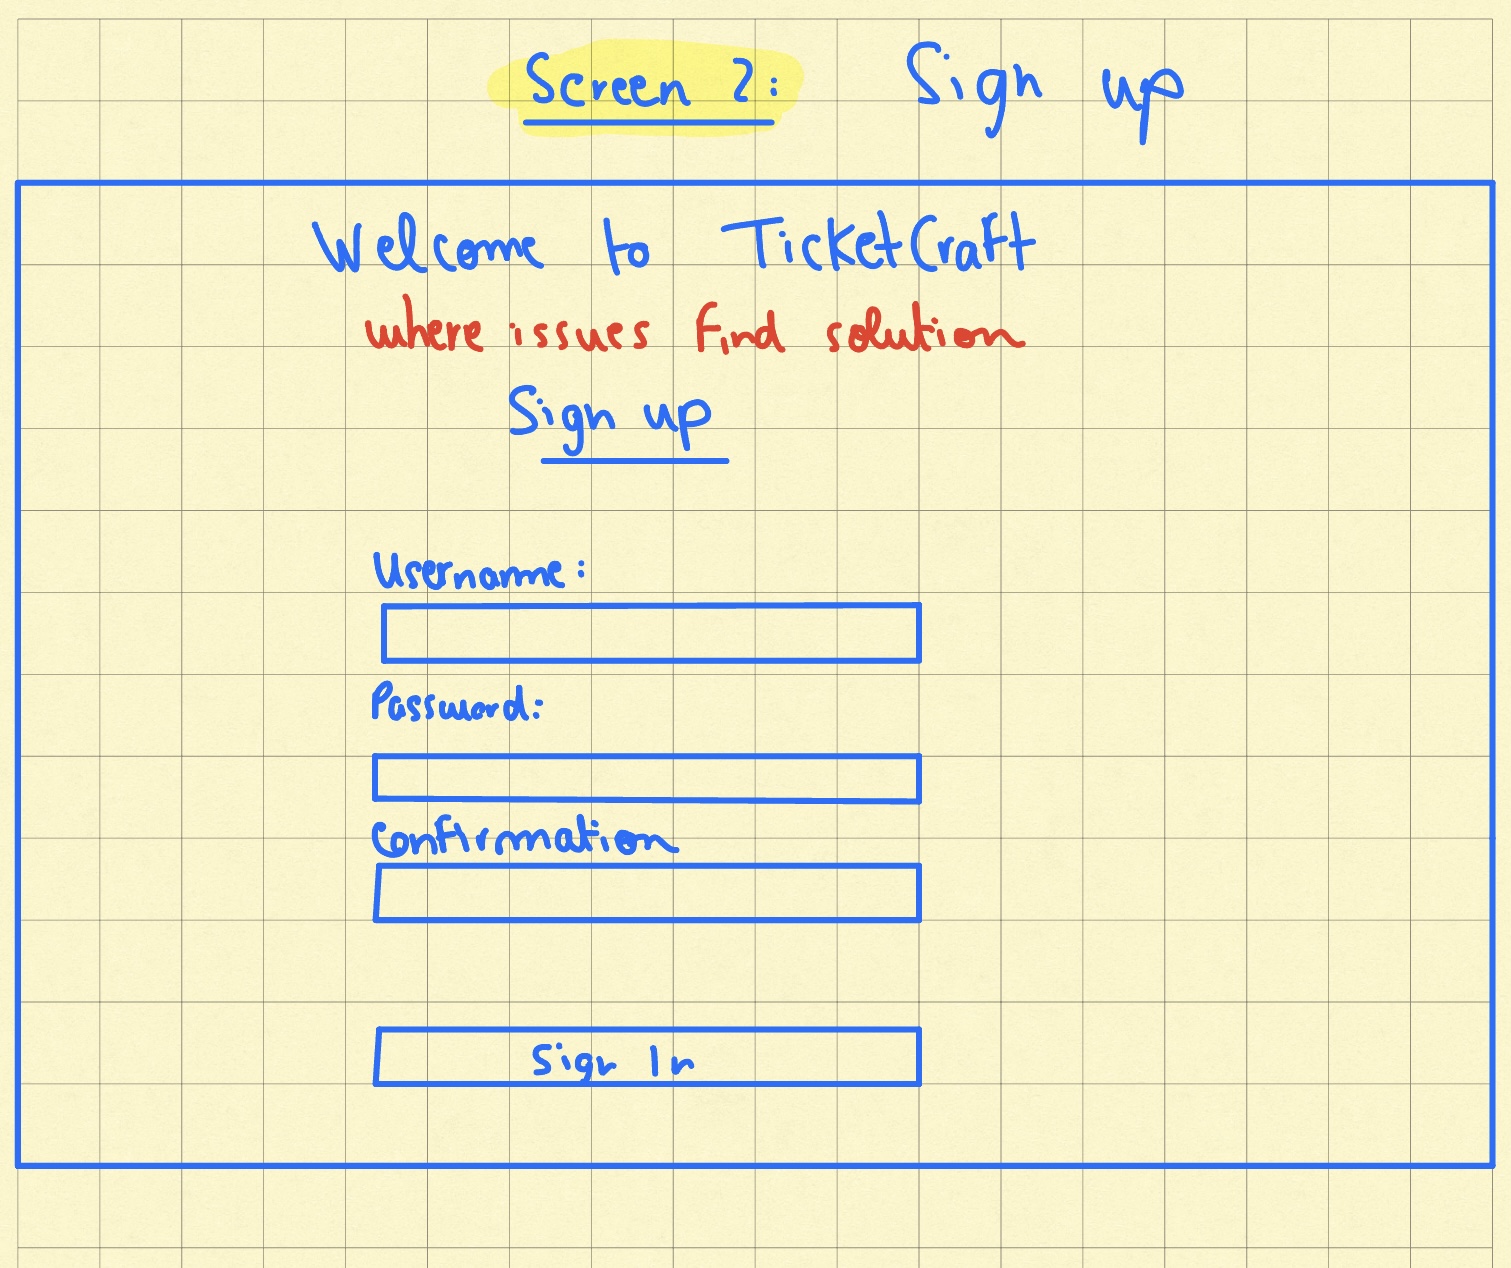 Screen 2: Sign up
Welcome to TicketCraft
where issues find solution
Sign up
Username:
Password:
Confirmation
Sign In